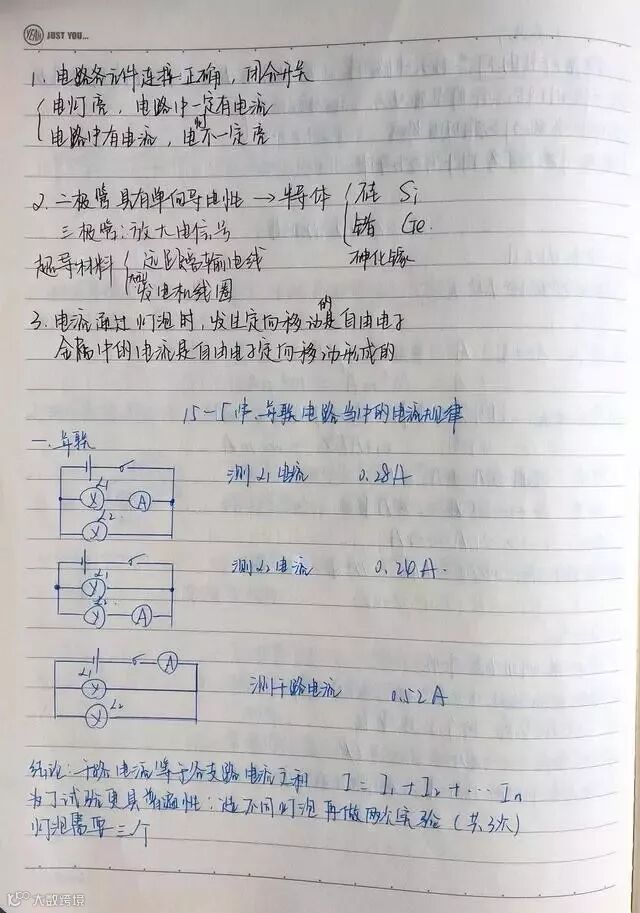 YEAH JUST YOU...
1. 电路各元件连接正确，闭合开关
电灯亮，电路中一定有电流
电路中有电流，电灯不一定亮
2. 二极管具有单向导电性 → 半导体 硅 Si
三极管：放大电信号 锗 Ge
砷化镓
超导材料 远距离输电线
发电机线圈
3. 电流通过灯泡时，发生定向移动的是自由电子
金属中的电流是自由电子定向移动形成的
15-5 串、并联电路当中的电流规律
一. 并联
L1 A 测L1电流 0.28A
L2
L1 测L2电流 0.24A
L2 A
A
L1 测干路电流 0.52A
L2
结论：干路电流等于各支路电流之和 I = I1 + I2 + … In
为了试验更具普遍性：选不同灯泡再做两次实验（共3次）
灯泡需要三个
大数跨境